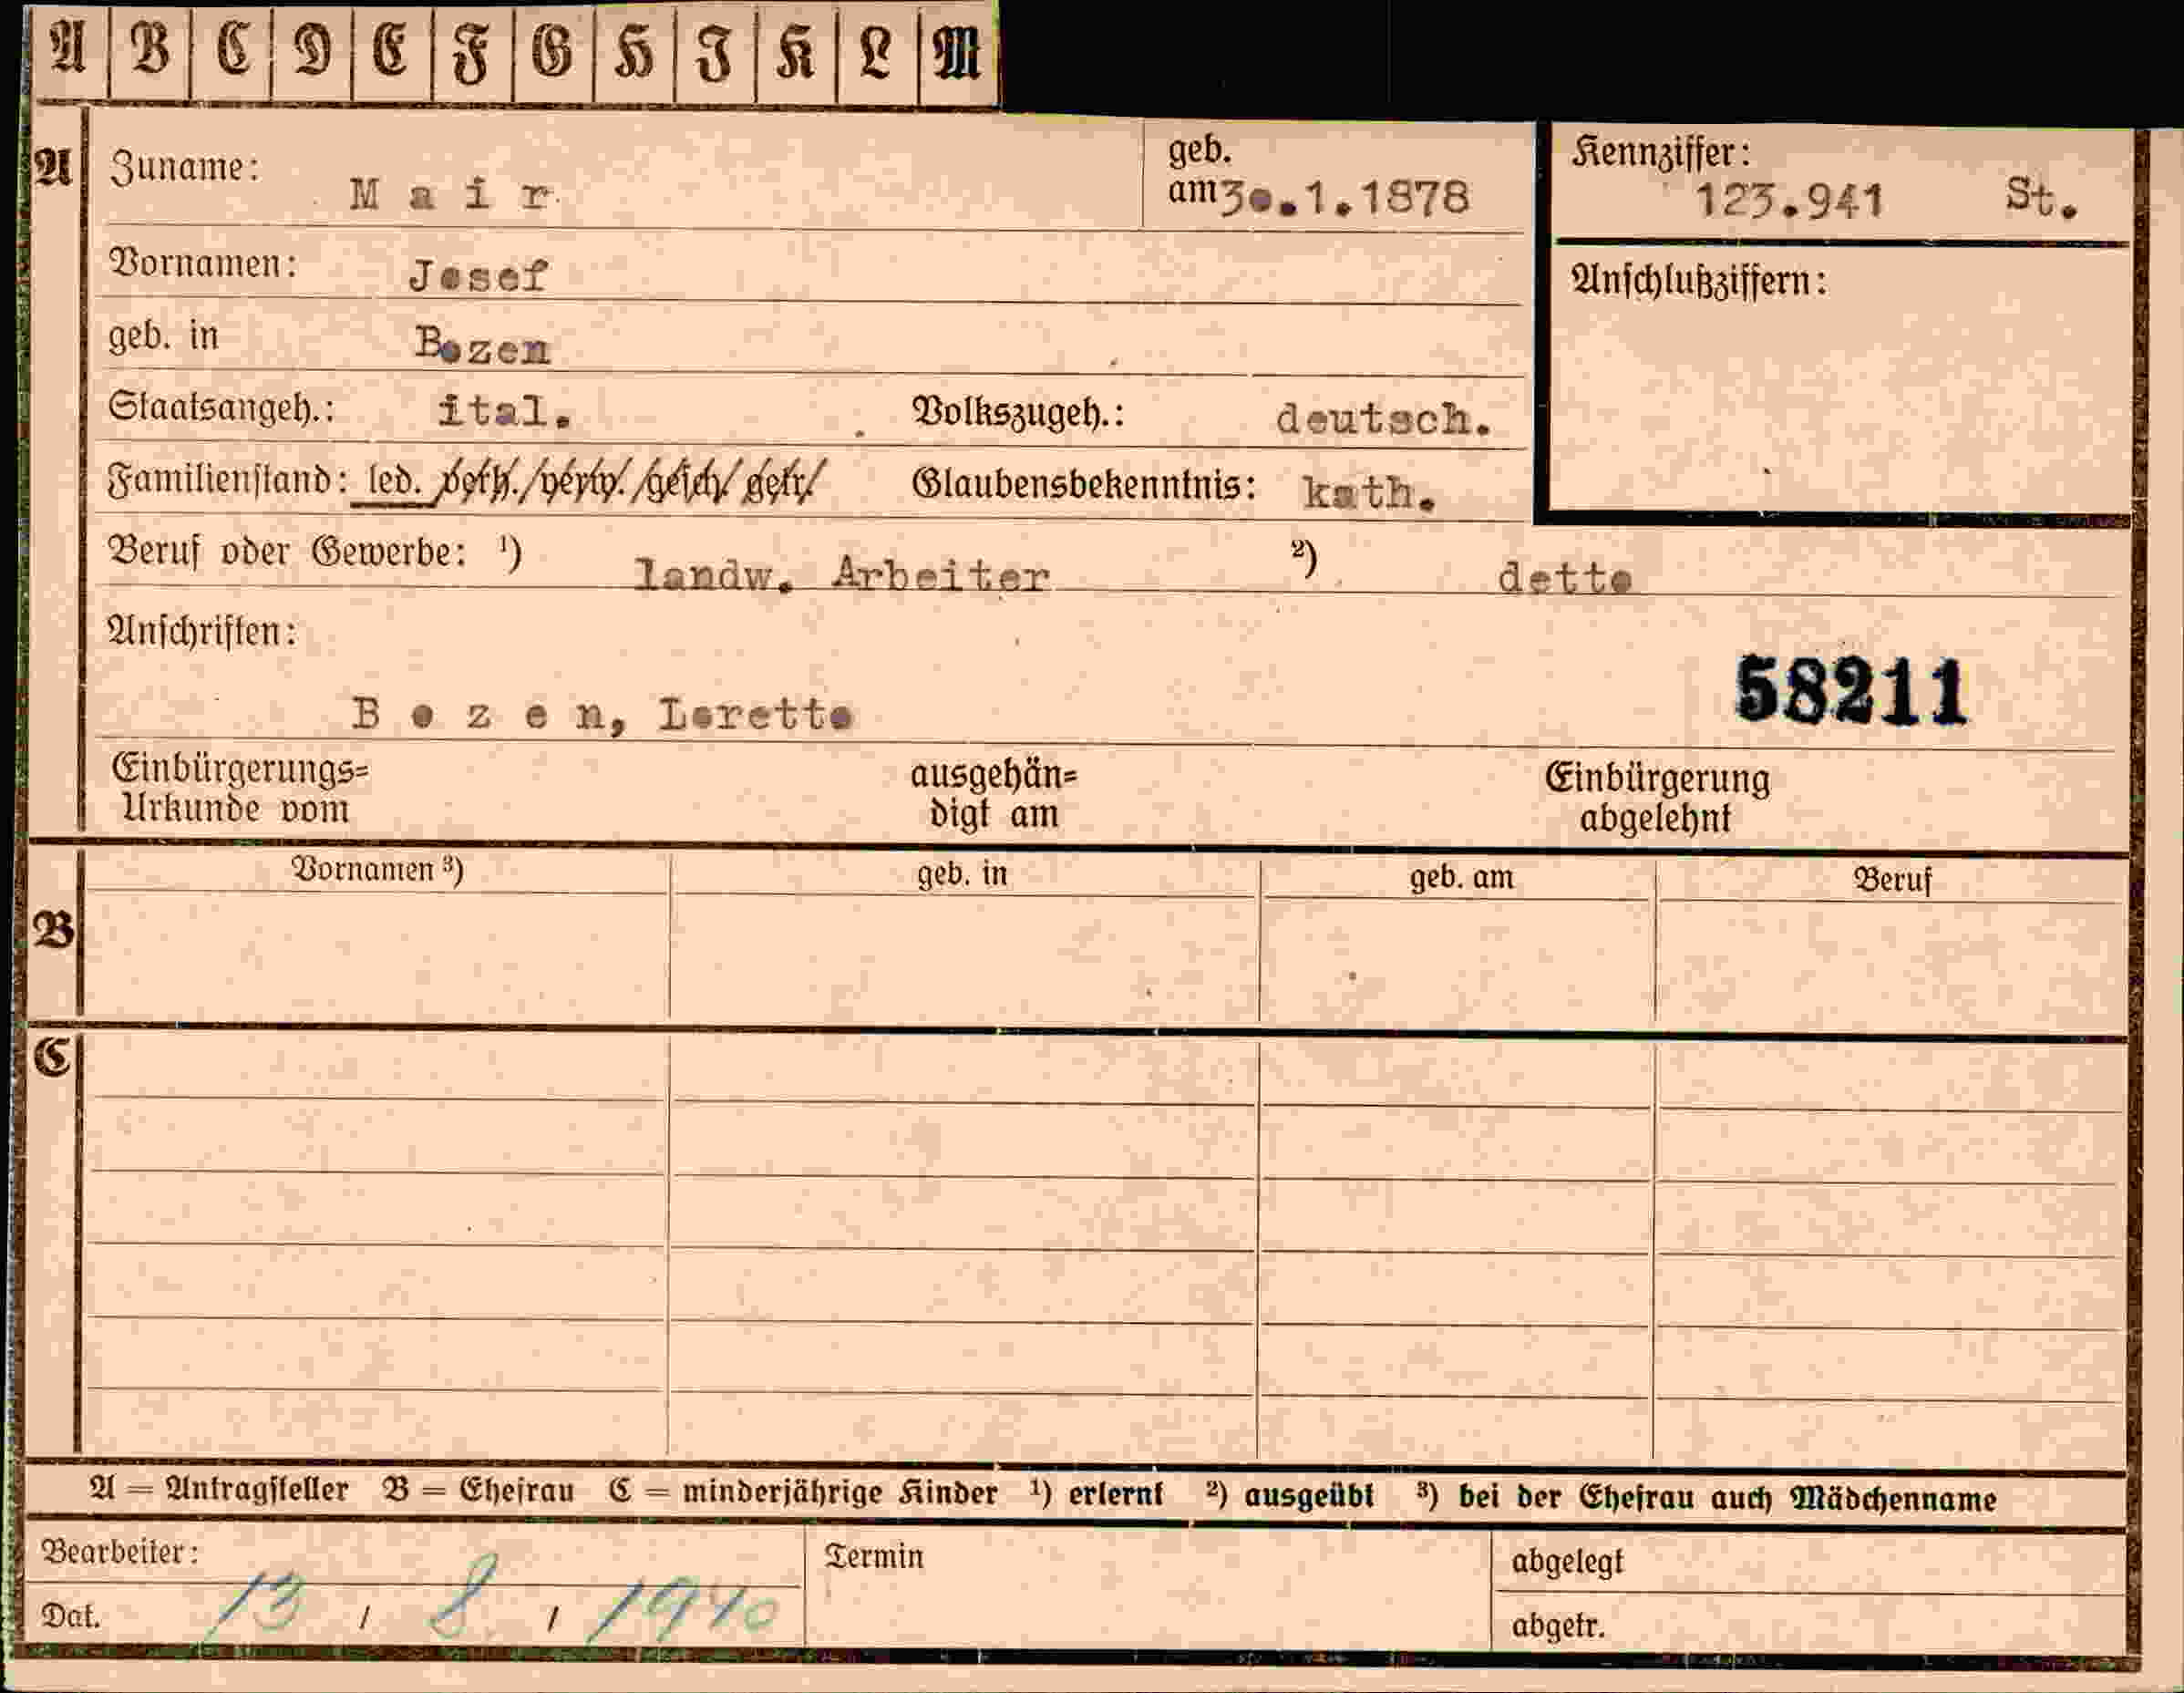 A B C D E F G H I K L M
A Zuname: Mair geb. am 30.1.1878 Kennziffer: 123.941 St.
Vornamen: Josef Anschlußziffern:
geb. in Bozen
Staatsangeh.: ital. Volkszugeh.: deutsch.
Familienstand: led. verh./verw./gesch/getr/ Glaubensbekenntnis: kath.
Beruf oder Gewerbe: ¹) landw. Arbeiter ²) detto
Anschriften:
58211
Bozen, Loretto
Einbürgerungs= Urkunde vom ausgehän= digt am Einbürgerung abgelehnt
Vornamen ³) geb. in geb. am Beruf
B
C
A = Antragsteller B = Ehefrau C = minderjährige Kinder ¹) erlernt ²) ausgeübt ³) bei der Ehefrau auch Mädchenname
Bearbeiter: Termin abgelegt
Dat. 13 / 8 / 1940 abgetr.